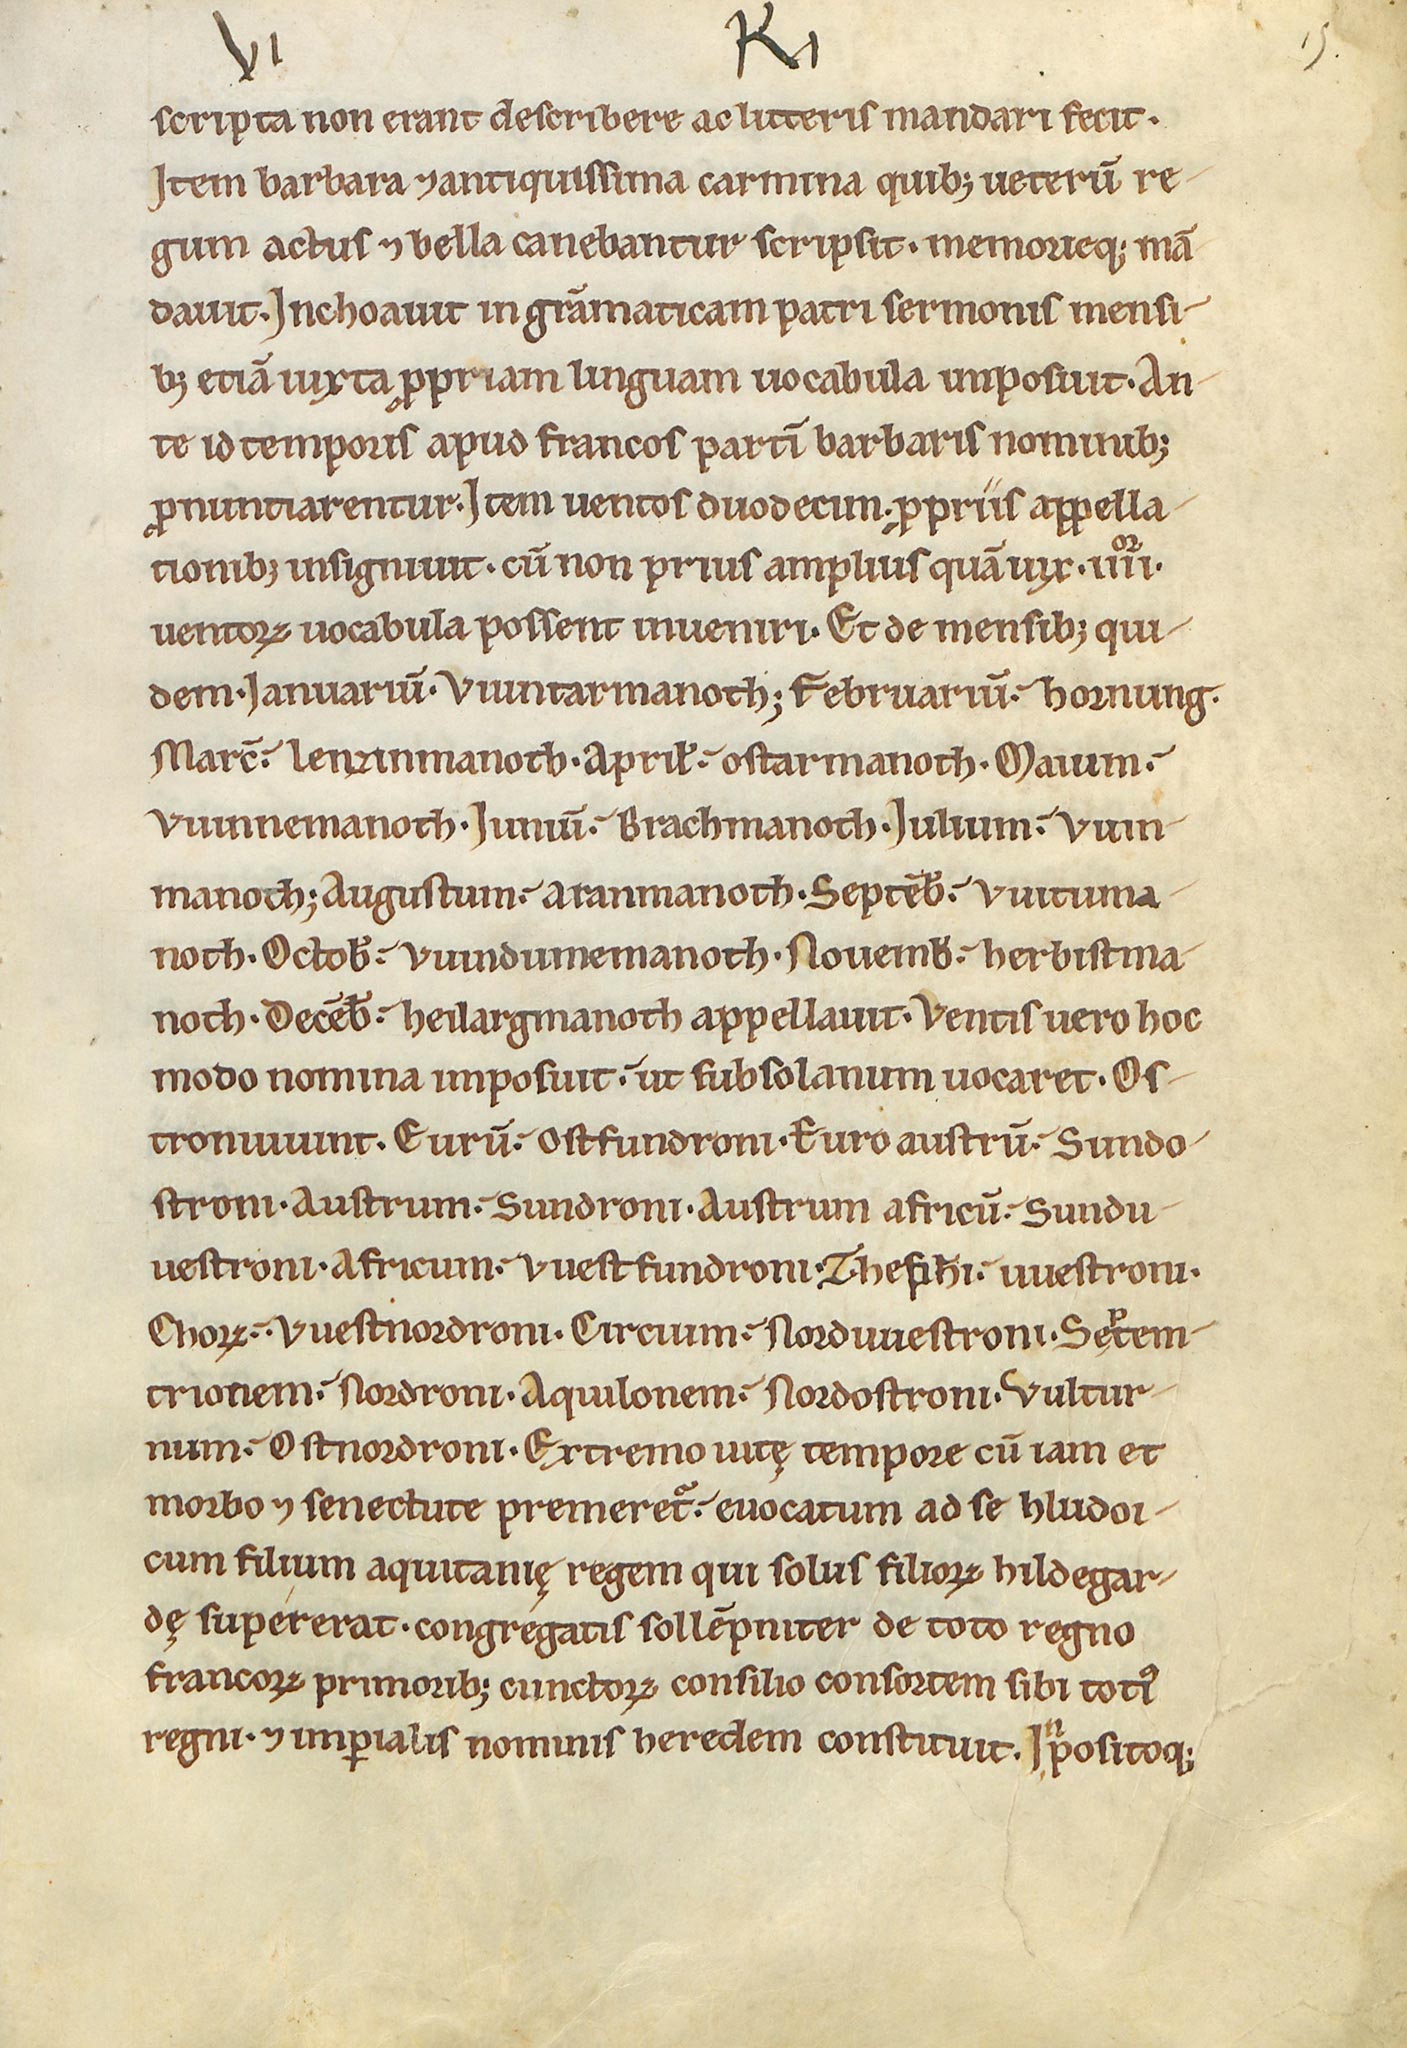 VI K I 15.
scripta non erant describere ac litteris mandari fecit.
Item barbara ⁊ antiquissima carmina quib; ueterū re-
gum actus ⁊ bella canebantur scripsit. memorieq; mā
dauit. Inchoauit in grāmaticam patri sermonis mensi-
b; etiā iuxta ꝓpriam linguam uocabula imposuit. An-
te id temporis apud francos partī barbaris nominib;
ꝓnuntiarentur. Item uentos duodecim. ꝓpriis appella-
tionib; insigniuit. cū non prius amplius quā uix. iiiiᵒʳ.
uentoꝝ uocabula possent inueniri. Et de mensib; qui-
dem. Ianuariū. Vuintarmanoth; Februariū. hornung.
Marc̄. lenzinmanoth. Apriꝉ. ostarmanoth. Maium.
Vuinnemanoth. Iuniū. Brachmanoth. Iulium. Vuin-
manoth; Augustum. aranmanoth. Septēb̄. Vuituma-
noth. Octob̄. Vuindumemanoth. Nouemb̄. herbistma-
noth. Decēb̄. heilargmanoth appellauit. Ventis uero hoc
modo nomina imposuit. ut subsolanum uocaret. Os-
troniuuint. Eurū. ostsundroni. Euro austrū. Sundo-
stroni. Austrum. Sundroni. Austrum africū. Sundu-
uestroni. Africum. Vuestsundroni. Thefiħi. uuestroni.
Choꝝ. Vuestnordroni. Circium. Norduuestroni. Sęᵖtem-
trionem. Nordroni. Aquilonem. Nordostroni. Vultur-
num. Ostnordroni. Extremo uitę tempore cū iam et
morbo ⁊ senectute premeret᷑. euocatum ad se hludoi-
cum filium aquitanię regem qui solus filioꝝ hildegar-
dę supererat. congregatis sollēpniter de toto regno
francoꝝ primorib; cunctoꝝ consilio consortem sibi totiꝰ
regni. ⁊ imꝑialis nominis heredem constituit. Inpositoq;